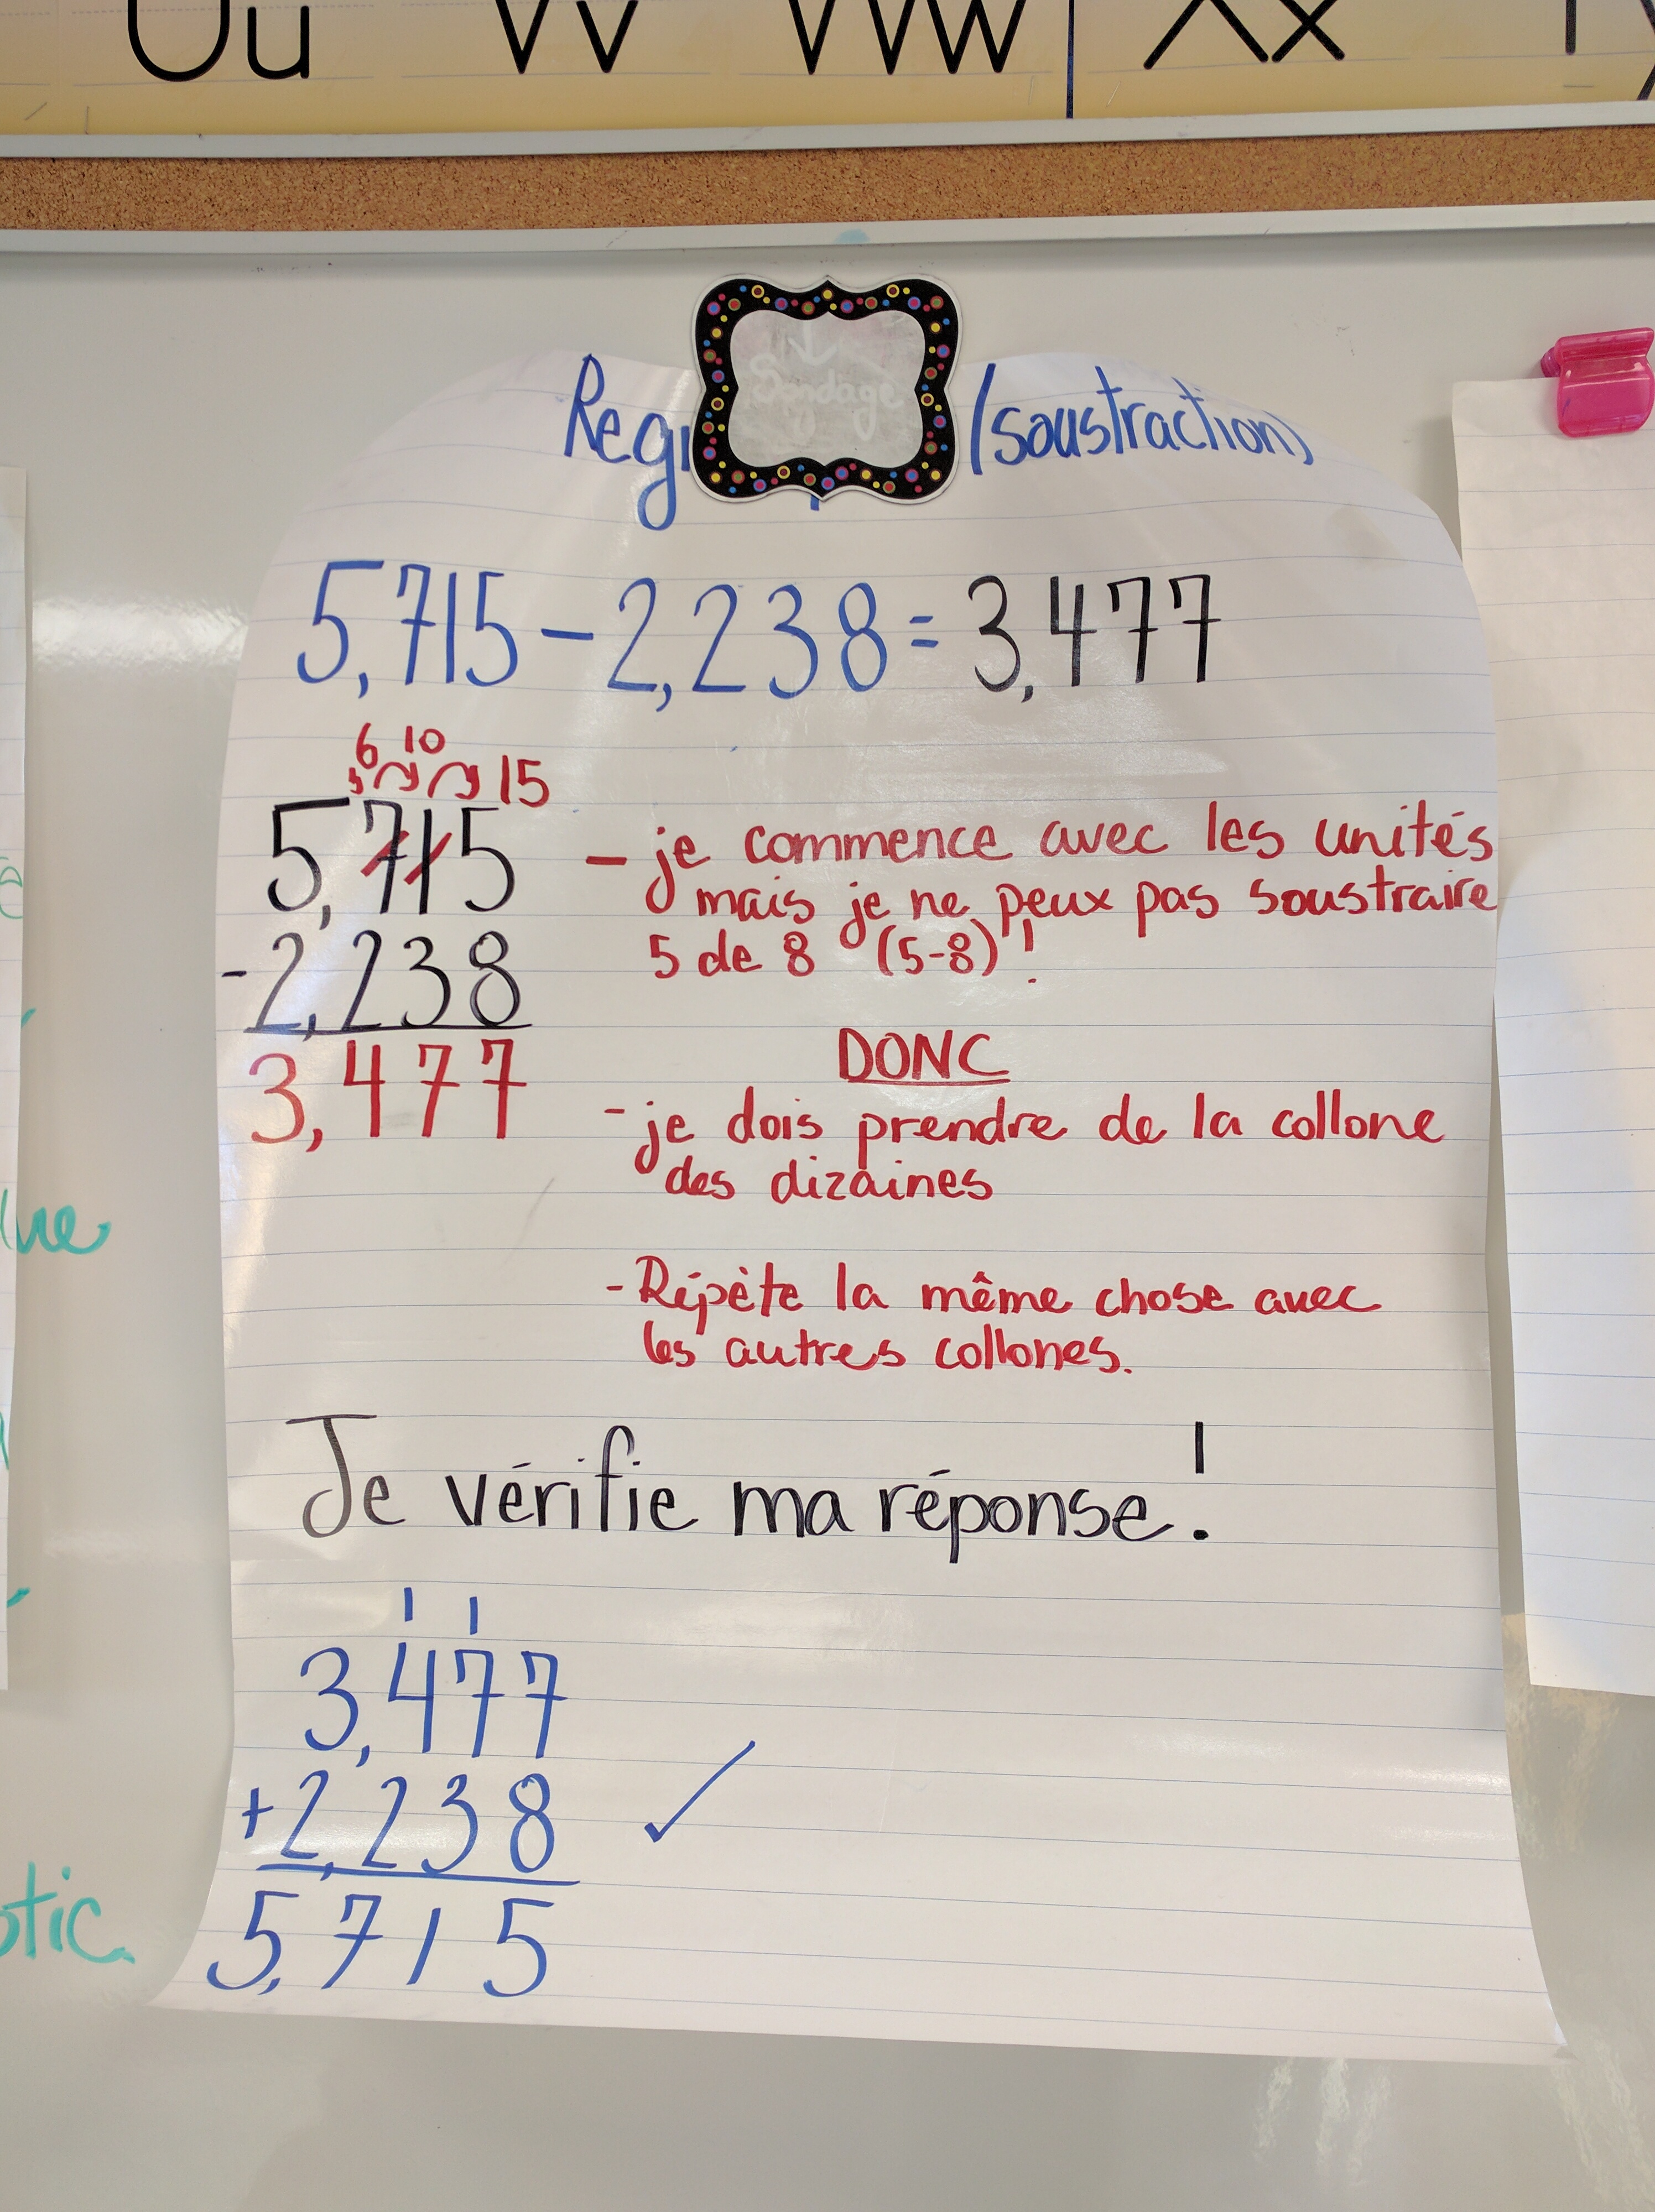 Uu Vv Ww Xx
Sondage
(soustraction)
5,715 - 2,238 = 3,477
6 10 15
5,715
- je commence avec les unités
mais je ne peux pas soustraire
5 de 8 (5-8)!
-2,238
3,477
DONC
- je dois prendre de la collone
des dizaines
- Répète la même chose avec
les autres collones.
Je vérifie ma réponse!
1 1
3,477
+2,238
5,715